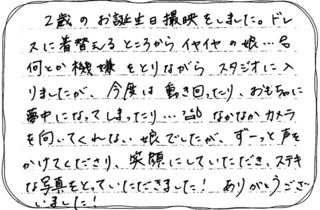 2歳のお誕生日撮映をしました。ドレ
スに着替えるところからイヤイヤの娘…
何とか機嫌をとりながらスタジオに入
りましたが、今度は動き回ったり、おもちゃに
夢中になってしまったり… なかなかカメラ
を向いてくれない娘でしたが、ずーっと声を
かけてくださり、笑顔にしていただき、ステキ
な写真をとっていただきました！ ありがとうござ
いました！